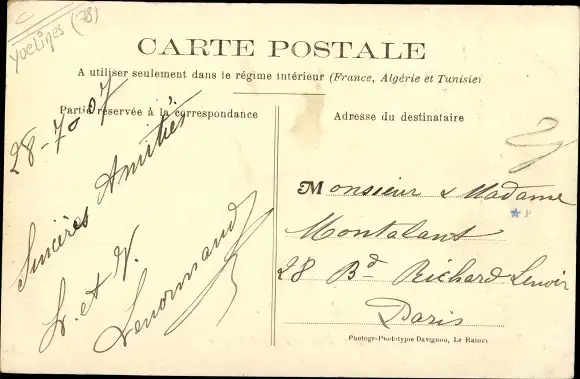 Yvelines (78)
CARTE POSTALE
A utiliser seulement dans le régime intérieur (France, Algérie et Tunisie)
Partie réservée à la correspondance
Adresse du destinataire
28-7-07
Sincères Amitiés
L. et V.
Lenormand
Monsieur & Madame
Montalant
28 Bd Richard Lenoir
Paris
Photogr-Phototypie Davignon, Le Raincy